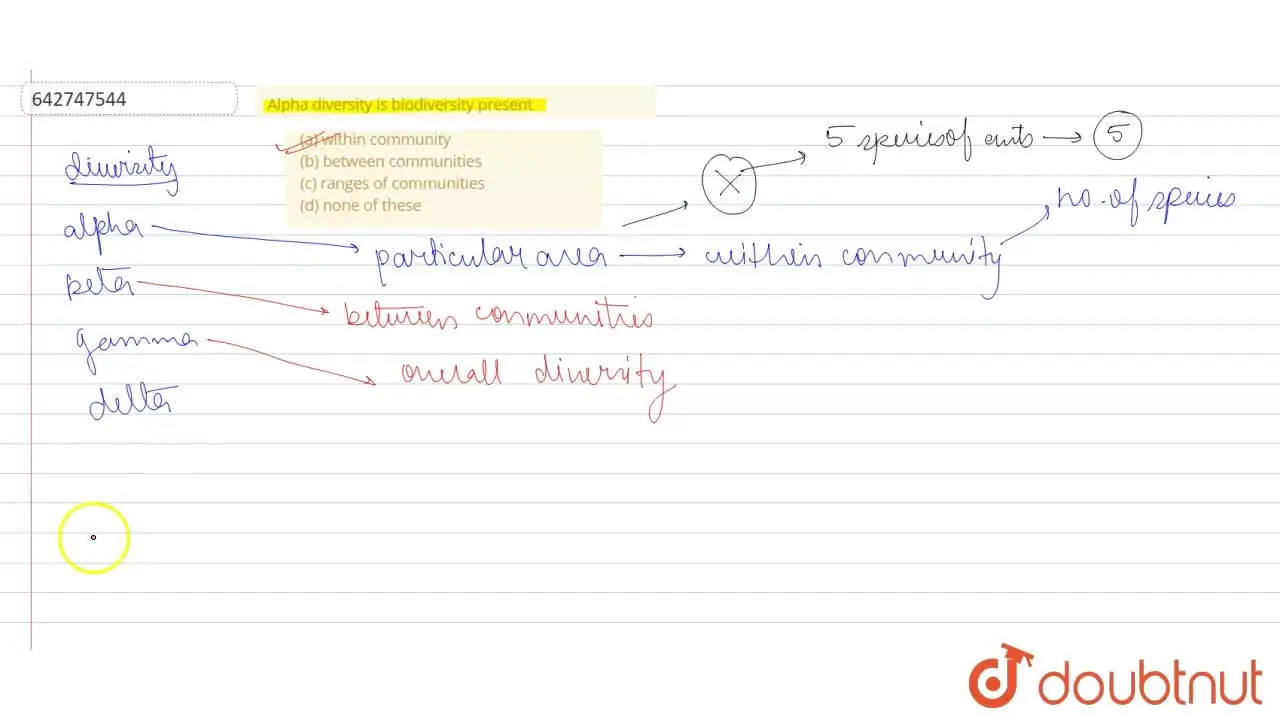 642747544
Alpha diversity is biodiversity present
(a) within community
(b) between communities
(c) ranges of communities
(d) none of these
5 species of ants → 5
X
diversity
no. of species
alpha
particular area → within community
beta
between communities
gamma
overall diversity
delta
doubtnut